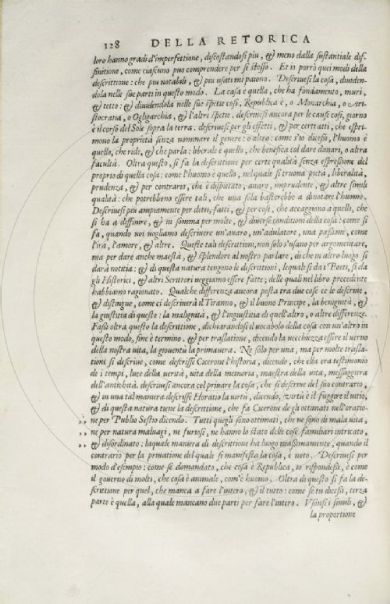 128 DELLA RETORICA
loro hanno gradi d'imperfettione, discostandosi piu, & meno dalla sustantiale dif-
finitione, come ciascuno puo comprendere per se stesso. Et io porrò quei modi della
descrittione: che piu notabili, & piu usati mi paiono. Descriuesi la cosa, diuiden-
dola nelle sue parti in questo modo. La casa è quella, che ha fondamento, muri,
& tetto: & diuidendola nelle sue spetie così, Republica è, o Monarchia, o Ari-
stocratia, o Oligarchia, & l'altre spetie. descriuesi ancor per le cause così, giorno
è il corso del Sole sopra la terra: descriuesi per gli effetti, & per certi atti, che espri-
mono la proprietà sinza nominare il genere: o altro: come s'io dicessi, l'huomo è
quello, che ride, & che parla: liberale è quello, che benefica col dare danari, o altra
facultà. Oltra questo, si fa la descrittione per certe qualità senza espressione del
proprio di quella cosa: come l'huomo è quello, nel quale si truoua pietà, liberalità,
prudenza, & per contrario, che è dispietato, auaro, imprudente, & altre simili
qualità: che potrebbono essere tali, che una sola basterebbe a dinotare l'huomo.
Descriuesi piu ampiamente per detti, fatti, & per cose, che accaggiono a quello, che
si ha a diffinire, & in somma per molte, & diuerse conditioni della cosa: come si
fa, quando noi uogliamo descriuere un'auaro, un'adulatore, una passione, come
l'ira, l'amore, & altre. Queste tali descrittioni, non solo s'usano per argomentare,
ma per dare anche maestà, & splendore al nostro parlare, di che in altro luogo si
darà notitia: & di questa natura tengono le descrittioni, lequali si da i Poeti, si da
gli Historici, & altri Scrittori ueggiamo essere fatte; delle quali nel libro precedente
habbiamo ragionato. Qualche differenza ancora posta tra due cose ce le descriue,
& distingue, come ci descriuerà il Tiranno, & il buono Principe, la benignità, &
la giustitia di questo: la malignità, & l'ingiustitia di quell'altro, o altre differenze.
Fassi oltra questo la descrittione, dichiarandosi il uocabolo della cosa con un'altro in
questo modo, fine è termino. & per traslatione, dicendo la uecchiezza essere il uerno
della nostra vita, la giouentù la primauera. Ne solo per una, ma per molte trasla-
tioni si descriue, come descrisse Cicerone l'historia, dicendo, che ella era testimonio
de i tempi, luce della uerità, uita della memoria, maestra della uita, messaggiera
dell'antichità. descriuesi ancora col priuare la cosa, che si descriue del suo contrario,
& in una tal maniera descrisse Horatio la uirtù, dicendo, uirtù è il fuggire il uitio,
& di questa natura tiene la descrittione, che fa Cicerone de gli ottimati nell'oratio-
ne per Publio Sestio dicendo. Tutti quegli sono ottimati, che ne sono di mala uita,
ne per natura maluagi, ne furiosi, ne hanno lo stato delle cose familiari intricato,
& disordinato: laquale maniera di descrittione ha luogo massimamente, quando il
contrario per la priuatione del quale si manifesta la cosa, è noto. Descriuesi per
modo d'essempio: come se domandato, che cosa è Republica, io rispondessi, è come
il gouerno di molti, che cosa è animal, com'è huomo. Oltra di questo si fa la de-
scrittione per quel, che manca a fare l'intero, & il tutto: come se tu dicessi, terza
parte è quella, alla quale mancano due parti per fare l'intero. Vsansi i simili, &
la proportione